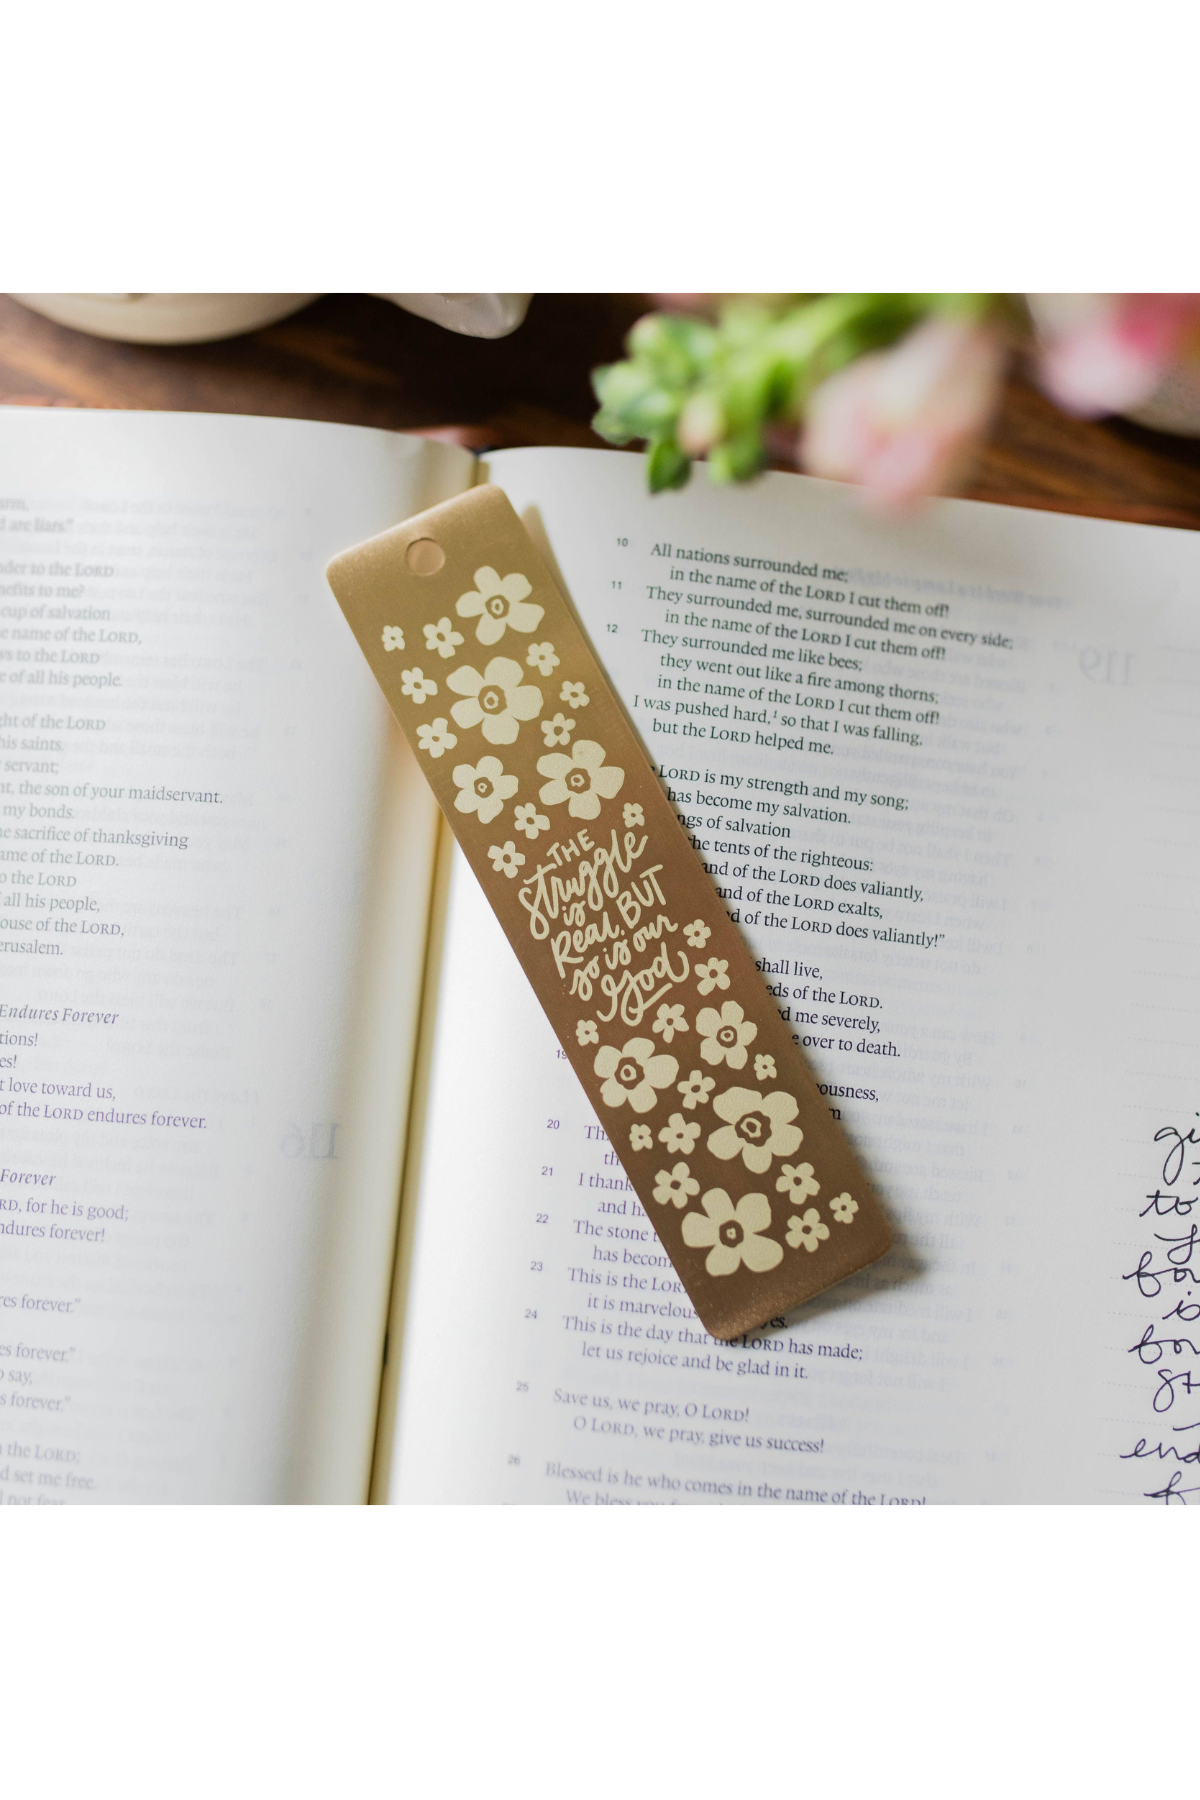 arm,
are liars."
der to the LORD
nefits to me?
cup of salvation
e name of the LORD,
ws to the LORD
e of all his people.
ght of the LORD
his saints.
servant;
nt, the son of your maidservant.
my bonds.
he sacrifice of thanksgiving
ame of the LORD.
o the LORD
all his people,
ouse of the LORD,
erusalem.
Endures Forever
tions!
es!
t love toward us,
of the LORD endures forever.
Forever
RD, for he is good;
ndures forever!
res forever."
es forever."
o say,
s forever."
n the LORD;
d set me free.
l not fear
10 All nations surrounded me;
in the name of the LORD I cut them off!
11 They surrounded me, surrounded me on every side;
in the name of the LORD I cut them off!
12 They surrounded me like bees;
they went out like a fire among thorns;
in the name of the LORD I cut them off!
I was pushed hard,¹ so that I was falling,
but the LORD helped me.
LORD is my strength and my song;
has become my salvation.
ngs of salvation
the tents of the righteous:
and of the LORD does valiantly,
and of the LORD exalts,
d of the LORD does valiantly!"
shall live,
eds of the LORD.
d me severely,
e over to death.
19
ousness,
m
20 Th
th
21 I thank
and h
22 The stone t
has becom
23 This is the LOR
it is marvelous yes.
24 This is the day that the LORD has made;
let us rejoice and be glad in it.
25 Save us, we pray, O LORD!
O LORD, we pray, give us success!
26 Blessed is he who comes in the name of the LORD!
We bless you
THE
struggle
is
Real, BUT
so is our
God
gi
to
for
is
for
st
end
f